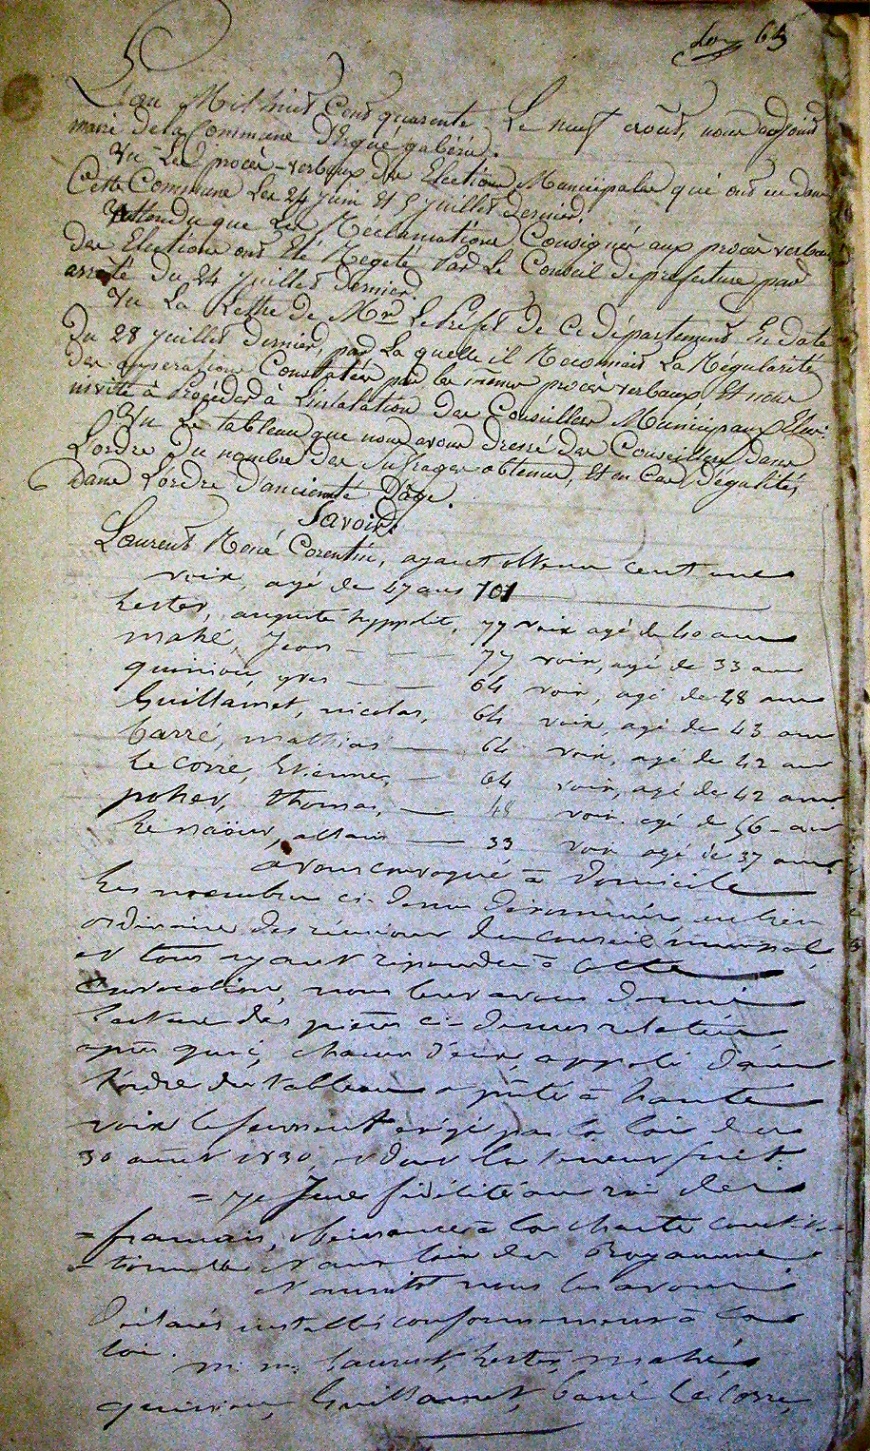 65
L'an Mil huit Cent quarante Le neuf août, nous adjoint
maire de la Commune d'Ergué gabéric.
Vu Les procès-verbaux des Elections Municipales qui ont eu dans
Cette Commune Les 24 juin Et 5 juillet dernier.
Attendu que Les Réclamations Consignées aux procès verbaux
des Elections ont Eté Rejeté Par Le Conseil de préfecture par
arrêté du 24 juillet dernier.
Vu La Lettre de Mr Le Préfet de Ce département En date
du 28 juillet dernier, par La quelle il Reconnait La Régularité
des opperations Constatées par les mêmes procès verbaux Et nous
invite à Procéder à L'instalation des Conseillers Municipaux Elus.
Vu Le tableau que nous avons dressé des Conseillers dans
L'ordre du nombre des Suffrages obtenus, Et en Cas d'égalités
Dans L'ordre d'ancienté D'âge.
Savoir.
Laurent René Corentin, ayant obtenu cent une
voix, agé de 47 ans 101
hester, auguste hyppolit, 77 voix agé de 40 ans
mahé, Jean 77 voix, agé de 33 ans
quiniou, yves 64 voix, agé de 48 ans
Guillamet, nicolas, 64 voix, agé de 43 ans
barré, mathias 64 voix, agé de 42 ans
Le corre, Etienne, 64 voix, agé de 42 ans
poher, thomas, 48 voix agé de 56 ans
Le naöur, allain 33 voix agé de 37 ans
avons convoqué à domicile
Les membres ci-dessus dénommés au lieu
ordinaire des réunions du conseil municipal
et tous ayant répondu à cette
convocation, nous leur avons donné
lecture des pièces ci-dessus relatées
après quoi, chacun d'eux, appelé dans
l'ordre du tableau a prêté à haute
voix le serment exigé par la loi du
30 août 1830, et dont la teneur suit:
= Je Jure fidélité au roi des
= français, obeissance à la charte constitu-
= tionnelle et aux lois du Royaume
Et ensuite nous les avons
Déclarés installés conformement à la
loi.
m. m. laurent, hester, mahé,
quiniou, Guillamet, barré Le corre,